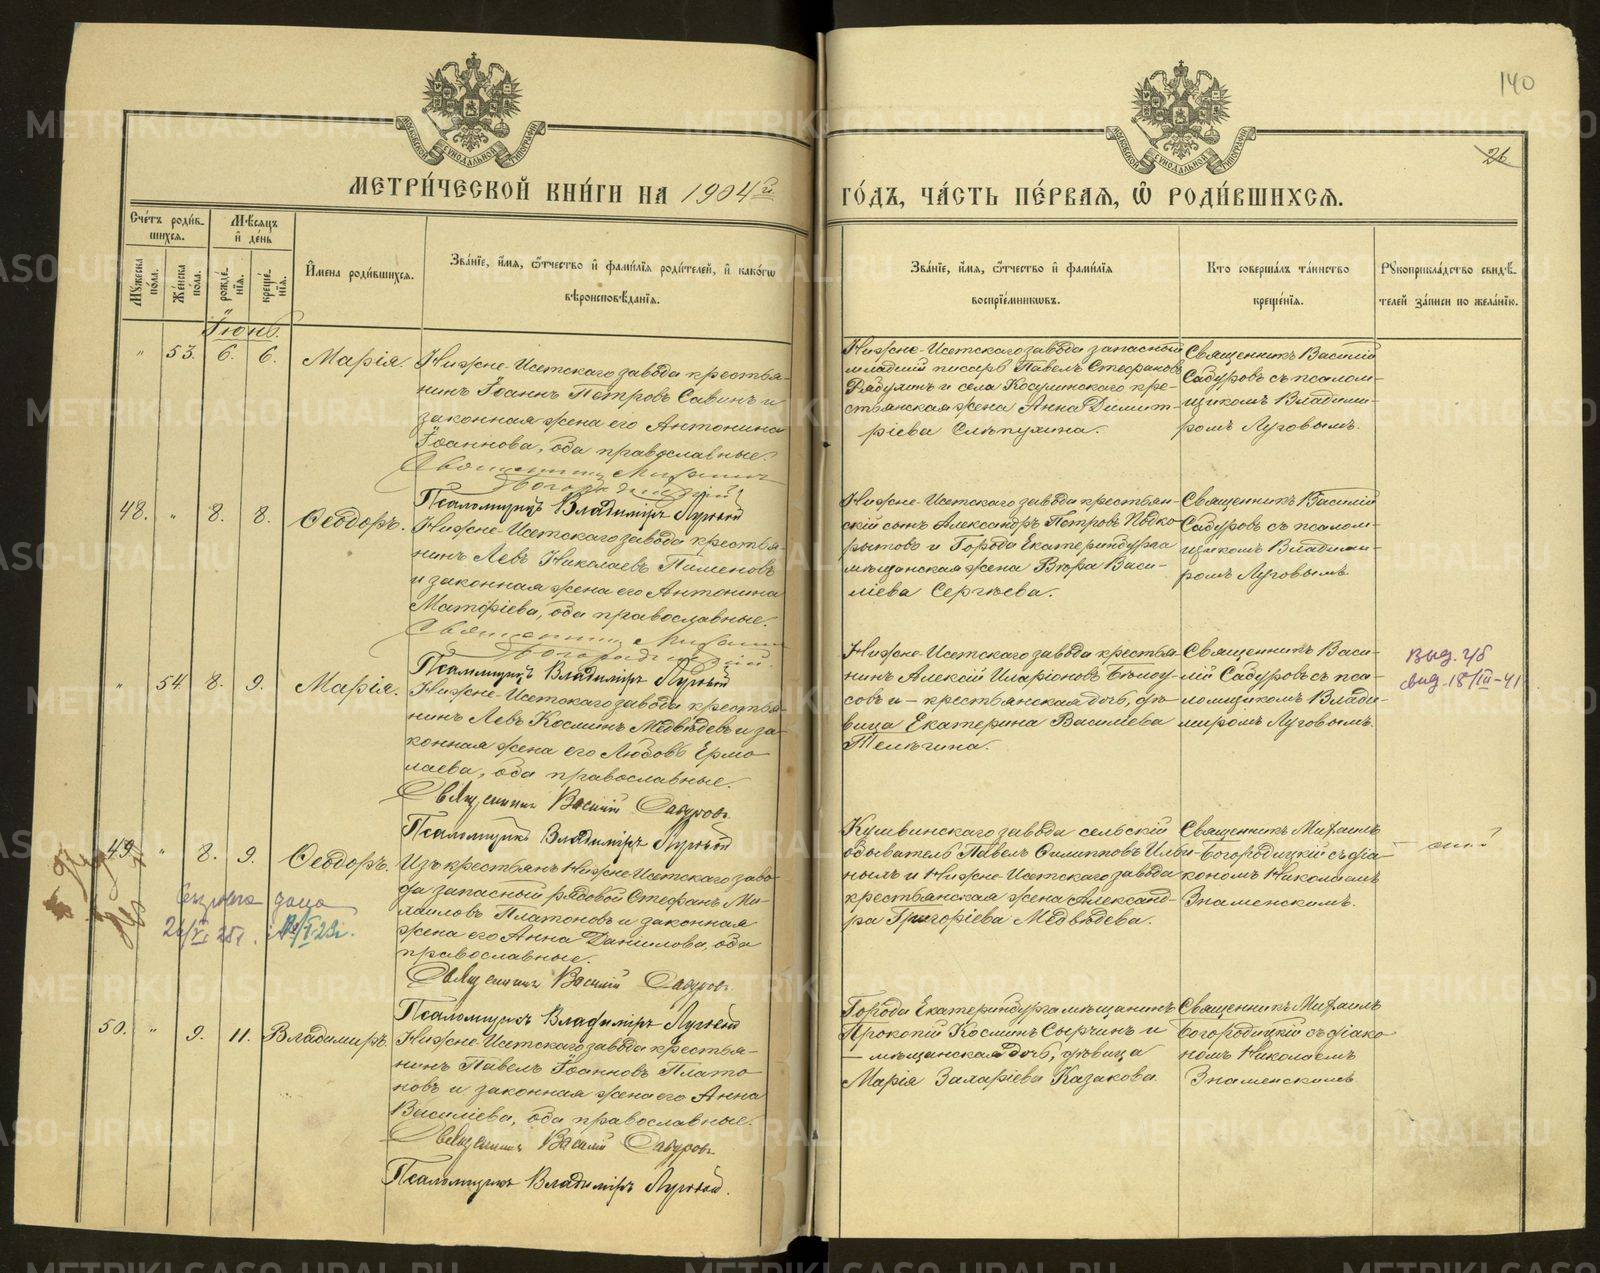 140
26
МЕТРИ́ЧЕСКОЙ КНИ́ГИ НА 1904й ГО́ДЪ, ЧА́СТЬ ПЕ́РВАЯ, Ѽ РОДИ́ВШИХСЯ.
Сче́тъ роди́в-
шихся.
Му́жеска по́ла.
Же́нска по́ла.
Мѣ́сяцъ
и҆ де́нь
рожде́нїя.
креще́нїя.
И҆мена̀ роди́вшихся.
Зва́нїе, и҆́мя, ѻ҆́тчество и҆ фами́лїя роди́телей, и҆ како́гѡ
вѣроисповѣ́данїя.
Зва́нїе, и҆́мя, ѻ҆́тчество и҆ фами́лїя
воспрїе́мниковъ.
Кто̀ соверша́лъ та́инство
креще́нїя.
Рꙋкоприкла́дство свидѣ́-
телей за́писи по жела́нїю.
Іюнь.
" 53. 6. 6. Марія.
Нижне-Исетскаго завода крестья-
нинъ Іоаннъ Петровъ Савинъ и
законная жена его Антонина
Іоаннова, оба православные.
Священникъ Михаилъ
Богородицкій
Псаломщикъ Владиміръ Луговой
Нижне-Исетскаго завода запасный
младший писарь Павелъ Стефановъ
Рядухинъ и села Косулинскаго кре-
стьянская жена Анна Димит-
ріева Слѣпухина.
Священникъ Василій
Сабуровъ съ псалом-
щикомъ Владими-
ромъ Луговымъ.
48. " 8. 8. Ѳеодоръ.
Нижне-Исетскаго завода крестья-
нинъ Левъ Николаевъ Пименовъ
и законная жена его Антонина
Матѳіева, оба православные.
Священникъ Михаилъ
Богородицкій.
Псаломщикъ Владиміръ Луговой
Нижне-Исетскаго завода крестьян-
скій сынъ Александръ Петровъ Подко-
рытовъ и Города Екатеринбурга
мѣщанская жена Вѣра Васи-
ліева Сергѣева.
Священникъ Василій
Сабуровъ съ псалом-
щикомъ Владими-
ромъ Луговымъ
" 54 8. 9. Марія.
Нижне-Исетскаго завода крестья-
нинъ Левъ Косминъ Медвѣдевъ и за-
конная жена его Любовь Ермо-
лаева, оба православные.
Священникъ Василій Сабуровъ
Псаломщикъ Владиміръ Луговой
Нижне-Исетскаго завода крестья-
нинъ Алексій Иларіоновъ Бѣлоу-
совъ и – крестьянская дочь, дѣ-
вица Екатерина Василіева
Телѣгина.
Священникъ Васи-
лій Сабуровъ съ пса-
ломщикомъ Влади-
миромъ Луговымъ.
выд.
свид. 18/III-41
49. " 8. 9. Ѳеодоръ.
Изъ крестьянъ Нижне-Исетскаго заво-
да запасный рядовой Стефанъ Ми-
хаиловъ Платоновъ и законная
жена его Анна Даніилова, оба
православные.
Священникъ Василій Сабуровъ
Псаломщикъ Владиміръ Луговой
Кушвинскаго завода сельскій
обыватель Павелъ Филипповъ Ильи-
ныхъ и Нижне-Исетскаго завода
крестьянская жена Александ-
ра Григоріева Медвѣдева.
Священникъ Михаилъ
Богородицкій съ діа-
кономъ Николаемъ
Знаменскимъ.
50. " 9. 11. Владимиръ.
Нижне-Исетскаго завода крестья-
нинъ Павелъ Іоанновъ Плато-
новъ и законная жена его Анна
Василіева, оба православные.
Священникъ Василій Сабуровъ
Псаломщикъ Владиміръ Луговой.
Города Екатеринбурга мѣщанинъ
Прокопій Косминъ Сырчинъ и
– мѣщанская дочь, дѣвица
Марія Захаріева Казакова.
Священникъ Михаилъ
Богородицкій съ діако-
номъ Николаемъ
Знаменскимъ
METRIKI.GASO-URAL.RU